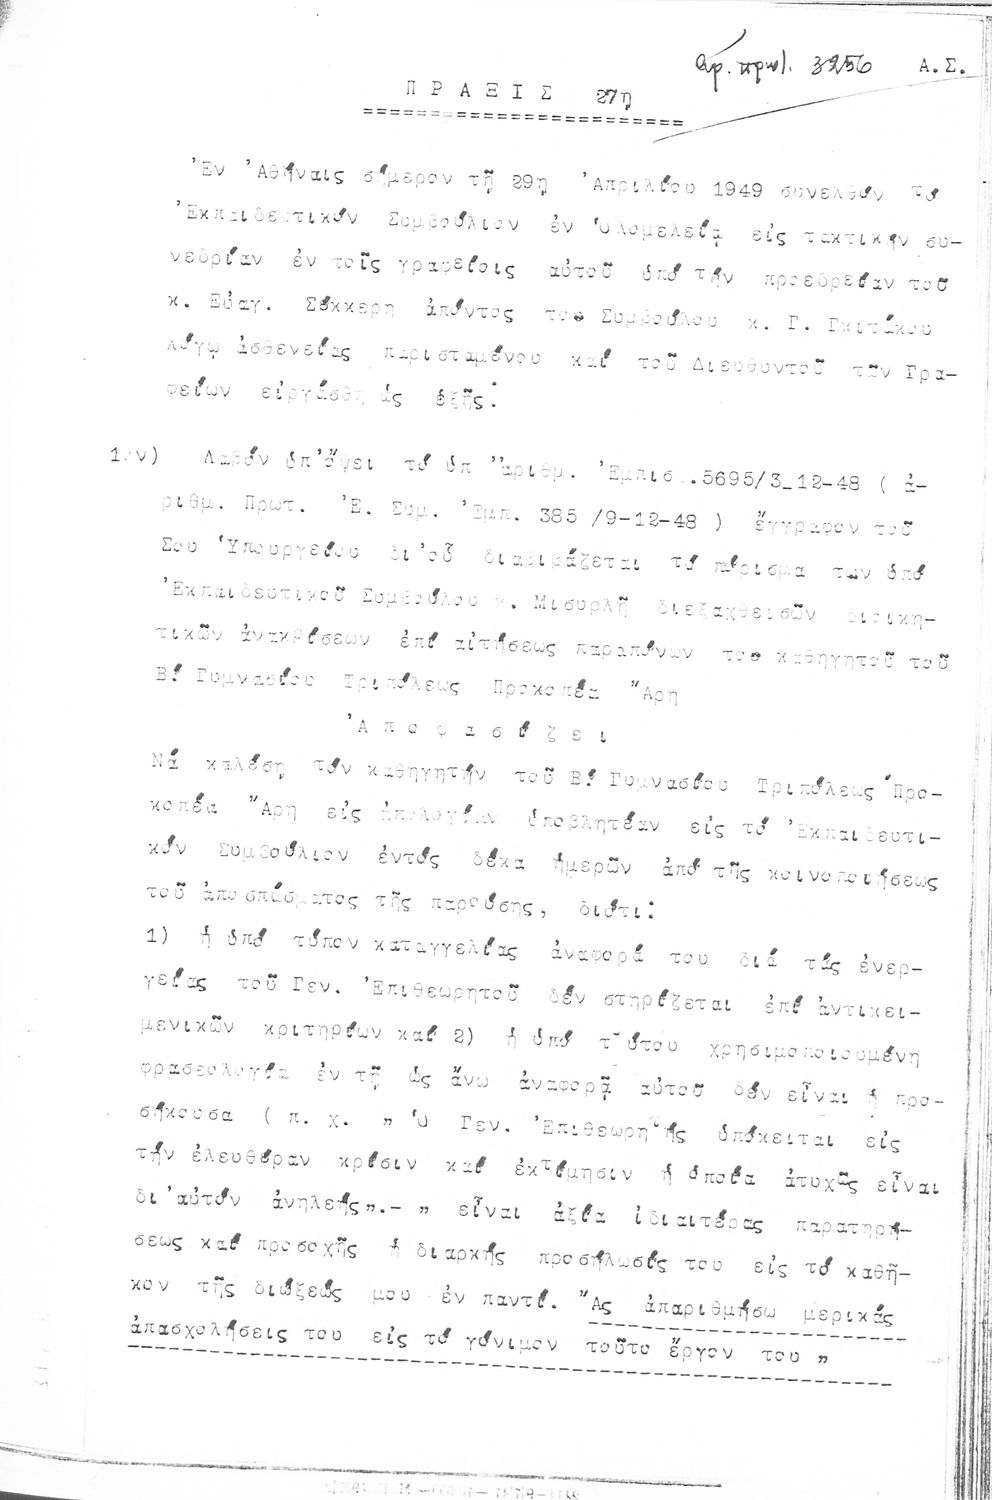 Αρ. πρωτ. 3256 Α.Σ.
Π Ρ Α Ξ Ι Σ 27η
========================
Ἐν Ἀθήναις σήμερον τῇ 29η Ἀπριλίου 1949 συνελθόν τό
Ἐκπαιδευτικόν Συμβούλιον ἐν ὁλομελείᾳ εἰς τακτικήν συ-
νεδρίαν ἐν τοῖς γραφείοις αὐτοῦ ὑπό τήν προεδρείαν τοῦ
κ. Εὐαγ. Σόκκερη ἀπόντος του Συμβούλου κ. Γ. Γκιτάκου
λόγῳ ἀσθενείας παρισταμένου καί τοῦ Διευθυντοῦ τῶν Γρα-
φείων εἰργάσθη ὡς ἑξῆς:
1ον) Λαβόν ὑπ'ὄψει τό ὑπ ἀριθμ. Ἐμπισ..5695/3_12-48 ( ἀ-
ριθμ. Πρωτ. Ἐ. Συμ. Ἐμπ. 385 /9-12-48 ) ἔγγραφον τοῦ
Σου Ὑπουργείου δι'οὗ διαβιβάζεται τό πόρισμα των ὑπό
Ἐκπαιδευτικοῦ Συμβούλου κ. Μισυρλῆ διεξαχθεισῶν διοικη-
τικῶν ἀνακρίσεων ἐπί αἰτήσεως παραπόνων του καθηγητοῦ τοῦ
Β! Γυμνασίου Τριπόλεως Προκοπέα Ἄρη
Ἀ π ο φ α σ ί ζ ε ι
Νά καλέσῃ τόν καθηγητήν τοῦ Β! Γυμνασίου Τριπόλεως Προ-
κοπέα Ἄρη εἰς ἀπολογίαν ὑποβλητέαν εἰς τό Ἐκπαιδευτι-
κόν Συμβούλιον ἐντός δέκα ἡμερῶν ἀπό τῆς κοινοποιήσεως
τοῦ ἀποσπάσματος τῆς παρούσης, διότι:
1) ἡ ὑπό τύπον καταγγελίας ἀναφορά του διά τάς ἐνερ-
γείας τοῦ Γεν. Ἐπιθεωρητοῦ δέν στηρίζεται ἐπί ἀντικει-
μενικῶν κριτηρίων καί 2) ἡ ὑπό τούτου χρησιμοποιουμένη
φρασεολογία ἐν τῇ ὡς ἄνω ἀναφορᾷ αὐτοῦ δέν εἶναι ἡ προ-
σήκουσα ( π. χ. „ Ὁ Γεν. Ἐπιθεωρητής ὑπόκειται εἰς
τήν ἐλευθέραν κρίσιν καί ἐκτίμησιν ἡ ὁποία ἀτυχῶς εἶναι
δι'αὐτόν ἀνηλεής„.- „ εἶναι ἀξία ἰδιαιτέρας παρατηρή-
σεως καί προσοχῆς ἡ διαρκής προσήλωσίς του εἰς τό καθῆ-
κον τῆς διώξεώς μου ἐν παντί. Ἄς ἀπαριθμήσω μερικάς
ἀπασχολήσεις του εἰς τό γόνιμον τοῦτο ἔργον του „